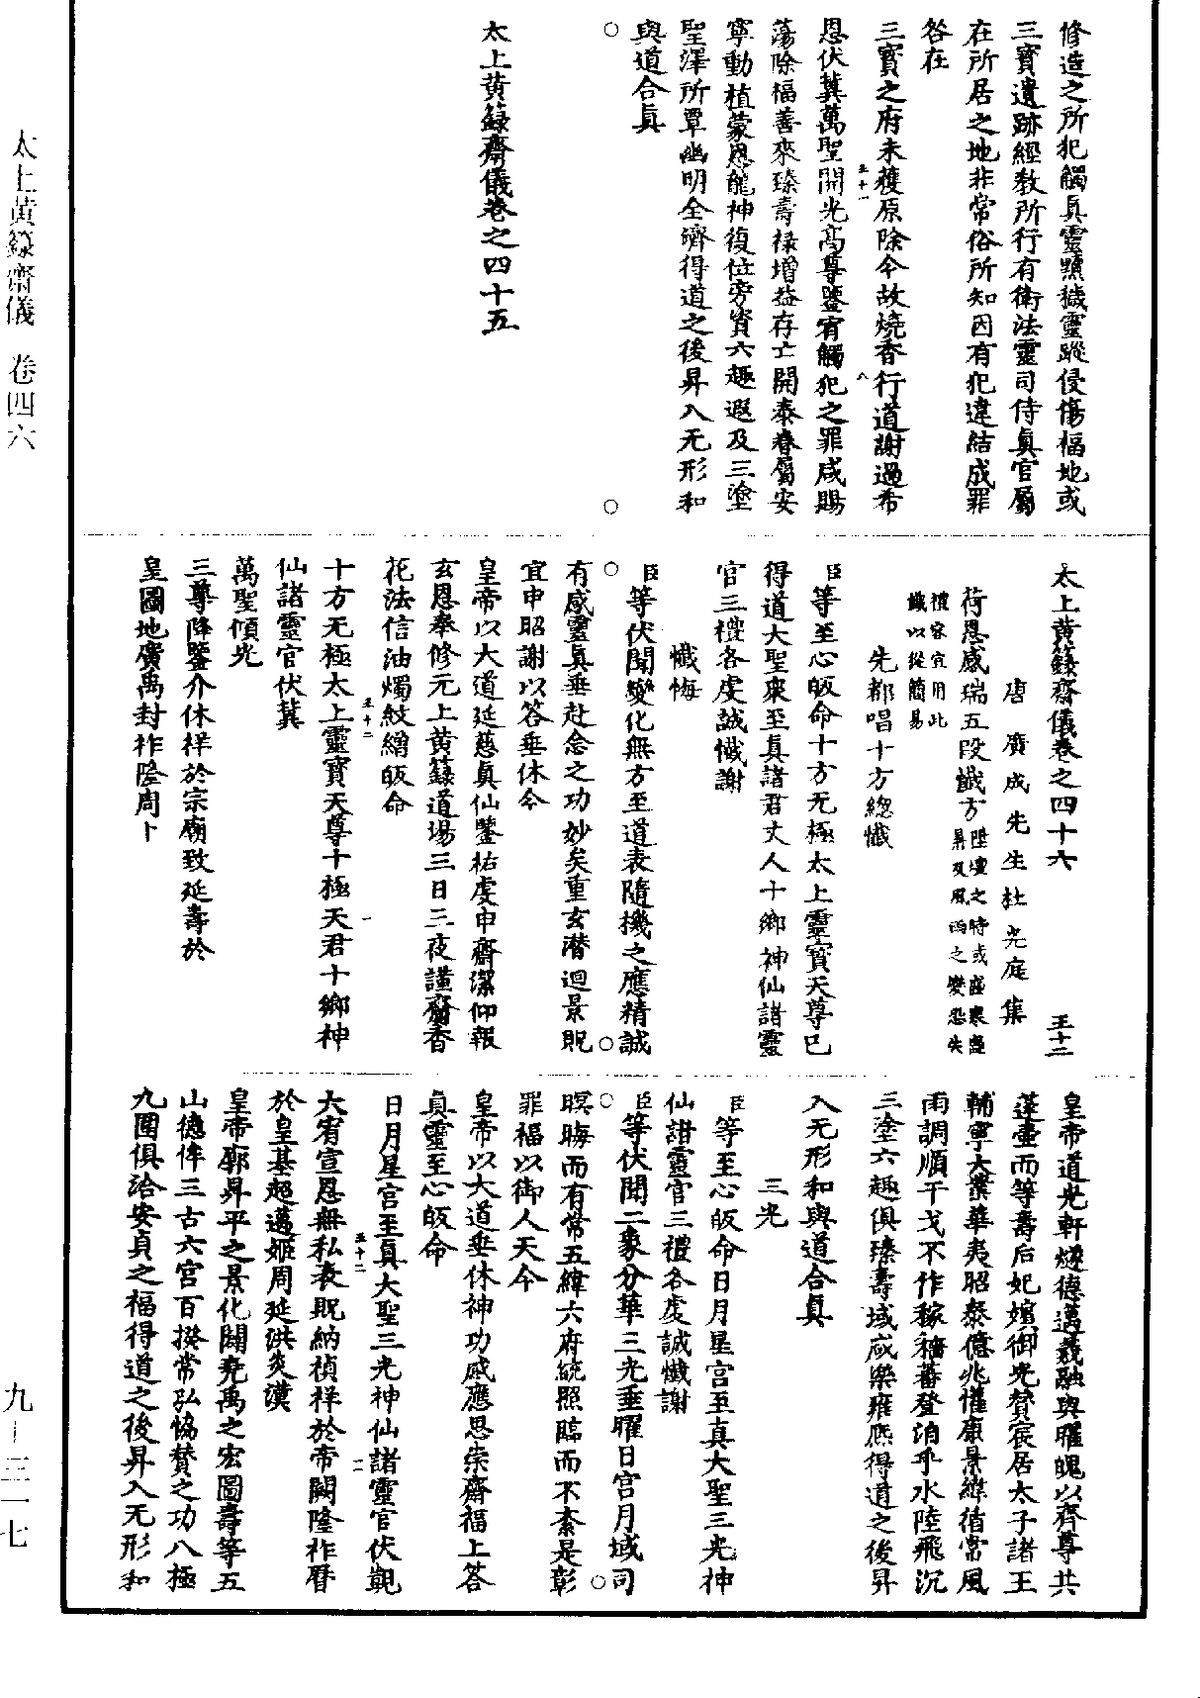 修造之所犯觸真靈點穢靈蹤侵傷福地或
三寶遺跡經教所行有衛法靈司侍真官屬
在所居之地非常俗所知因有犯違結成罪
咎在
三寶之府未獲原除今故燒香行道謝過希
恩伏冀萬聖開光高尊鑒宥觸犯之罪咸賜
蕩除福善來臻壽祿增益存亡開泰眷屬安
寧動植蒙恩龍神復位旁資六趣遐及三塗
聖澤所覃幽明全濟得道之後昇入无形和
與道合真
太上黃籙齋儀卷之四十五
太上黃籙齋儀卷之四十六 王十二
唐廣成先生杜光庭集
荷恩感瑞五段懺方昇壇之時或
禮容宜用此
懺以從簡易
先都唱十方總懺
臣等至心皈命十方无極太上靈寶天尊已
得道大聖衆至真諸君丈人十鄉神仙諸靈
官三禮各虔誠懺謝
懺悔
臣等伏聞變化無方至道表隨機之應精誠
有感靈真垂赴念之功妙矣重玄潛迴景貺
宜申昭謝以答垂休今
皇帝以大道延慈真仙鑒祐虔申齋潔仰報
玄恩奉修元上黃籙道場三日三夜謹齎香
花法信油燭紋繒皈命
十方无極太上靈寶天尊十極天君十鄉神
仙諸靈官伏冀
萬聖傾光
三尊降鑒介休祥於宗廟致延壽於
皇圖地廣禹封祚隆周卜
皇帝道光軒燧德邁羲融與曜魄以齊尊共
蓬壺而等壽后妃嬪御光贊宸居太子諸王
輔寧大業華夷昭泰億兆懽康景緯循常風
雨調順干戈不作稼穡蕃登洎乎水陸飛沉
三塗六趣俱臻壽域咸樂雍熙得道之後昇
入无形和與道合真
三光
臣等至心皈命日月星宮至真大聖三光神
仙諸靈官三禮各虔誠懺謝
臣等伏聞二象分華三光垂曜日宮月域司
暝晦而有常五緯六府統照臨而不紊是彰
罪福以御人天今
皇帝以大道垂休神功感應思崇齋福上答
真靈至心皈命
日月星宮至真大聖三光神仙諸靈官伏觀
大宥宣恩無私表貺納禎祥於帝闕隆祚曆
於皇基超邁姬周延洪炎漢
皇帝廓昇平之景化闢堯禹之宏圖壽等五
山德侔三古六宮百揆常弘恊贊之功八極
九圍俱洽安貞之福得道之後昇入无形和
太上黃籙齋儀 卷四六
九—三一七